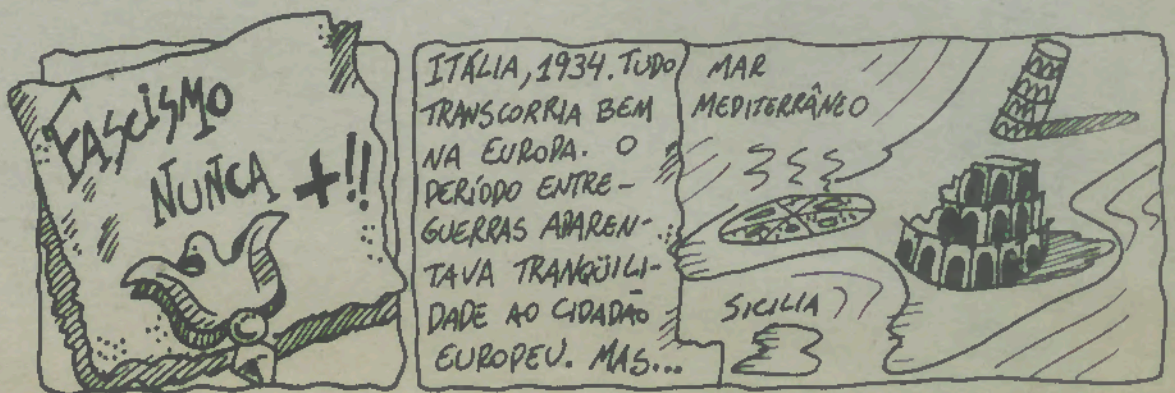 FASCISMO
NUNCA +!!
ITÁLIA, 1934. TUDO
TRANSCORRIA BEM
NA EUROPA. O
PERÍODO ENTRE-
GUERRAS APAREN-
TAVA TRANQÜILI-
DADE AO CIDADÃO
EUROPEU. MAS...
MAR
MEDITERRÂNEO
SICILIA